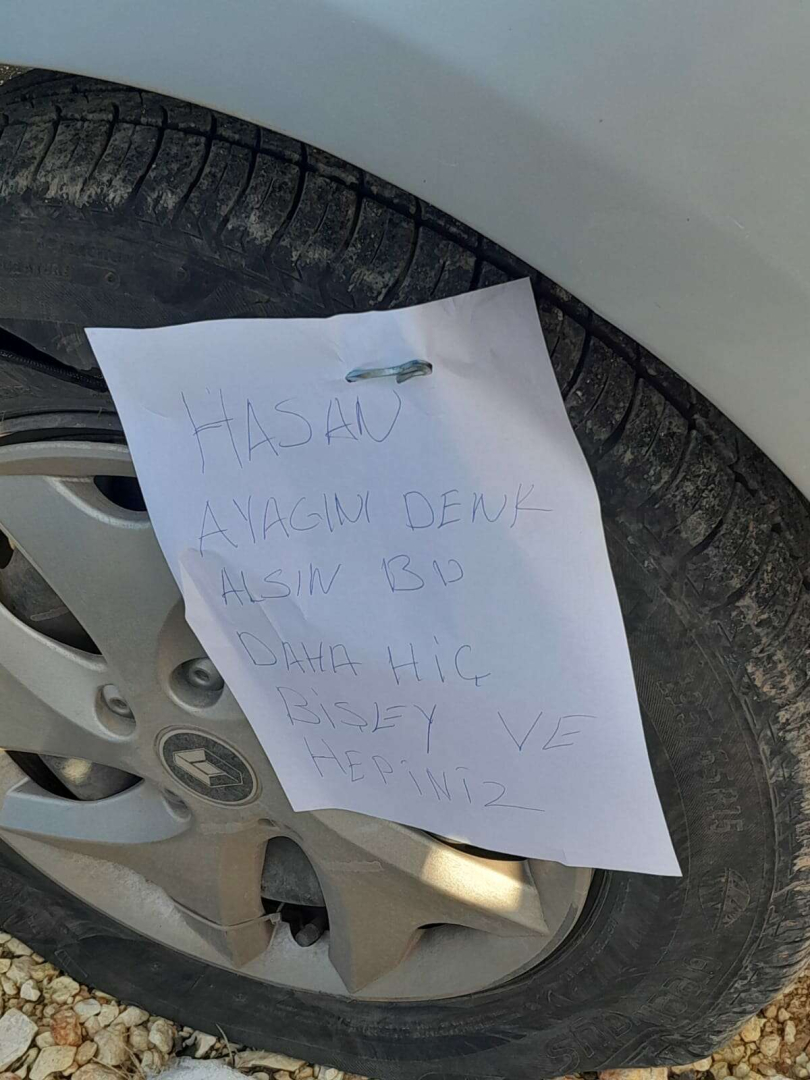 HASAN
AYAGINI DENK
ALSIN BU
DAHA HİÇ
BİŞEY VE
HEPİNİZ
185/65R15